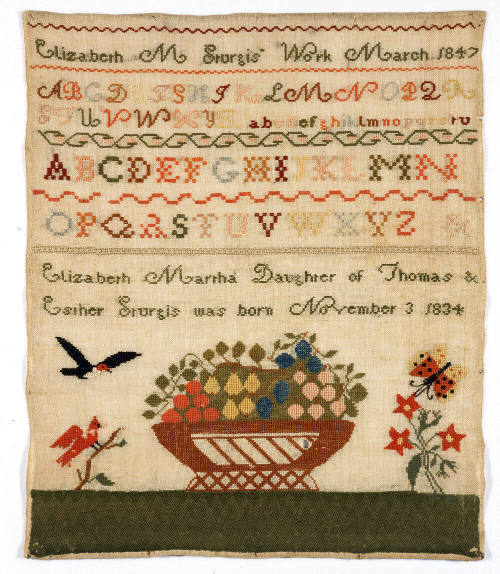 Elizabeth M Sturgis' Work March 1847
A B C D E F G H I K L M N O P Q R
S T U V W X Y Z a b c d e f g h i k l m n o p q r s t u
A B C D E F G H I J K L M N
O P Q R S T U V W X Y Z &
Elizabeth Martha Daughter of Thomas &
Esther Sturgis was born November 3 1834